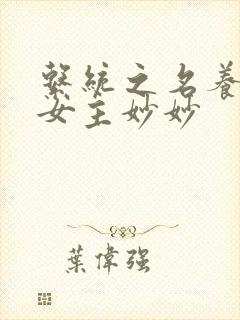 繫統之名養
女主妙妙
葉偉强